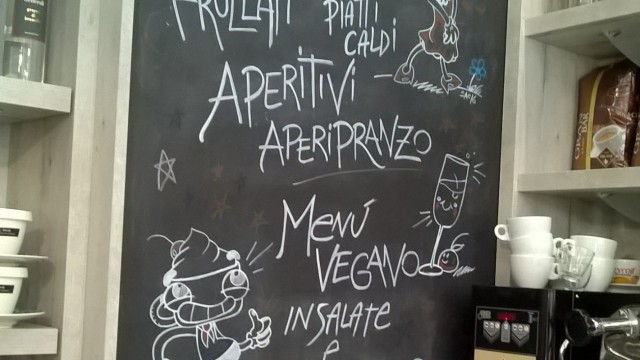 FRULLATI
PIATTI
CALDI
APERITIVI
APERIPRANZO
MENÚ
VEGANO
INSALATE
E